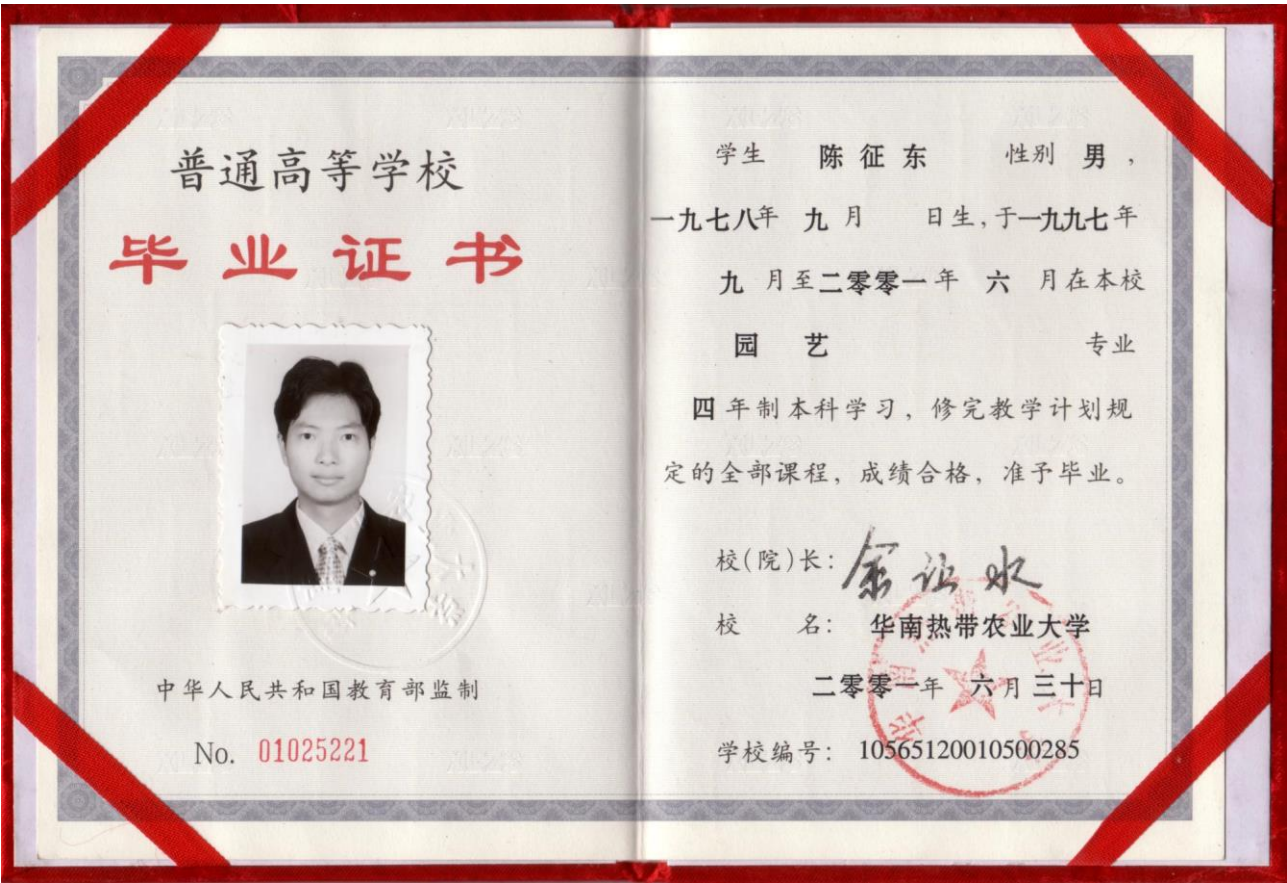 普通高等学校
毕业证书
中华人民共和国教育部监制
No. 01025221
学生 陈征东 性别 男，
一九七八年 九月 日生,于一九九七年
九 月至二零零一年 六 月在本校
园 艺 专业
四 年制本科学习，修完教学计划规
定的全部课程，成绩合格，准予毕业。
校(院)长：余让水
校 名：华南热带农业大学
二零零一年 六月三十日
学校编号：10565120010500285